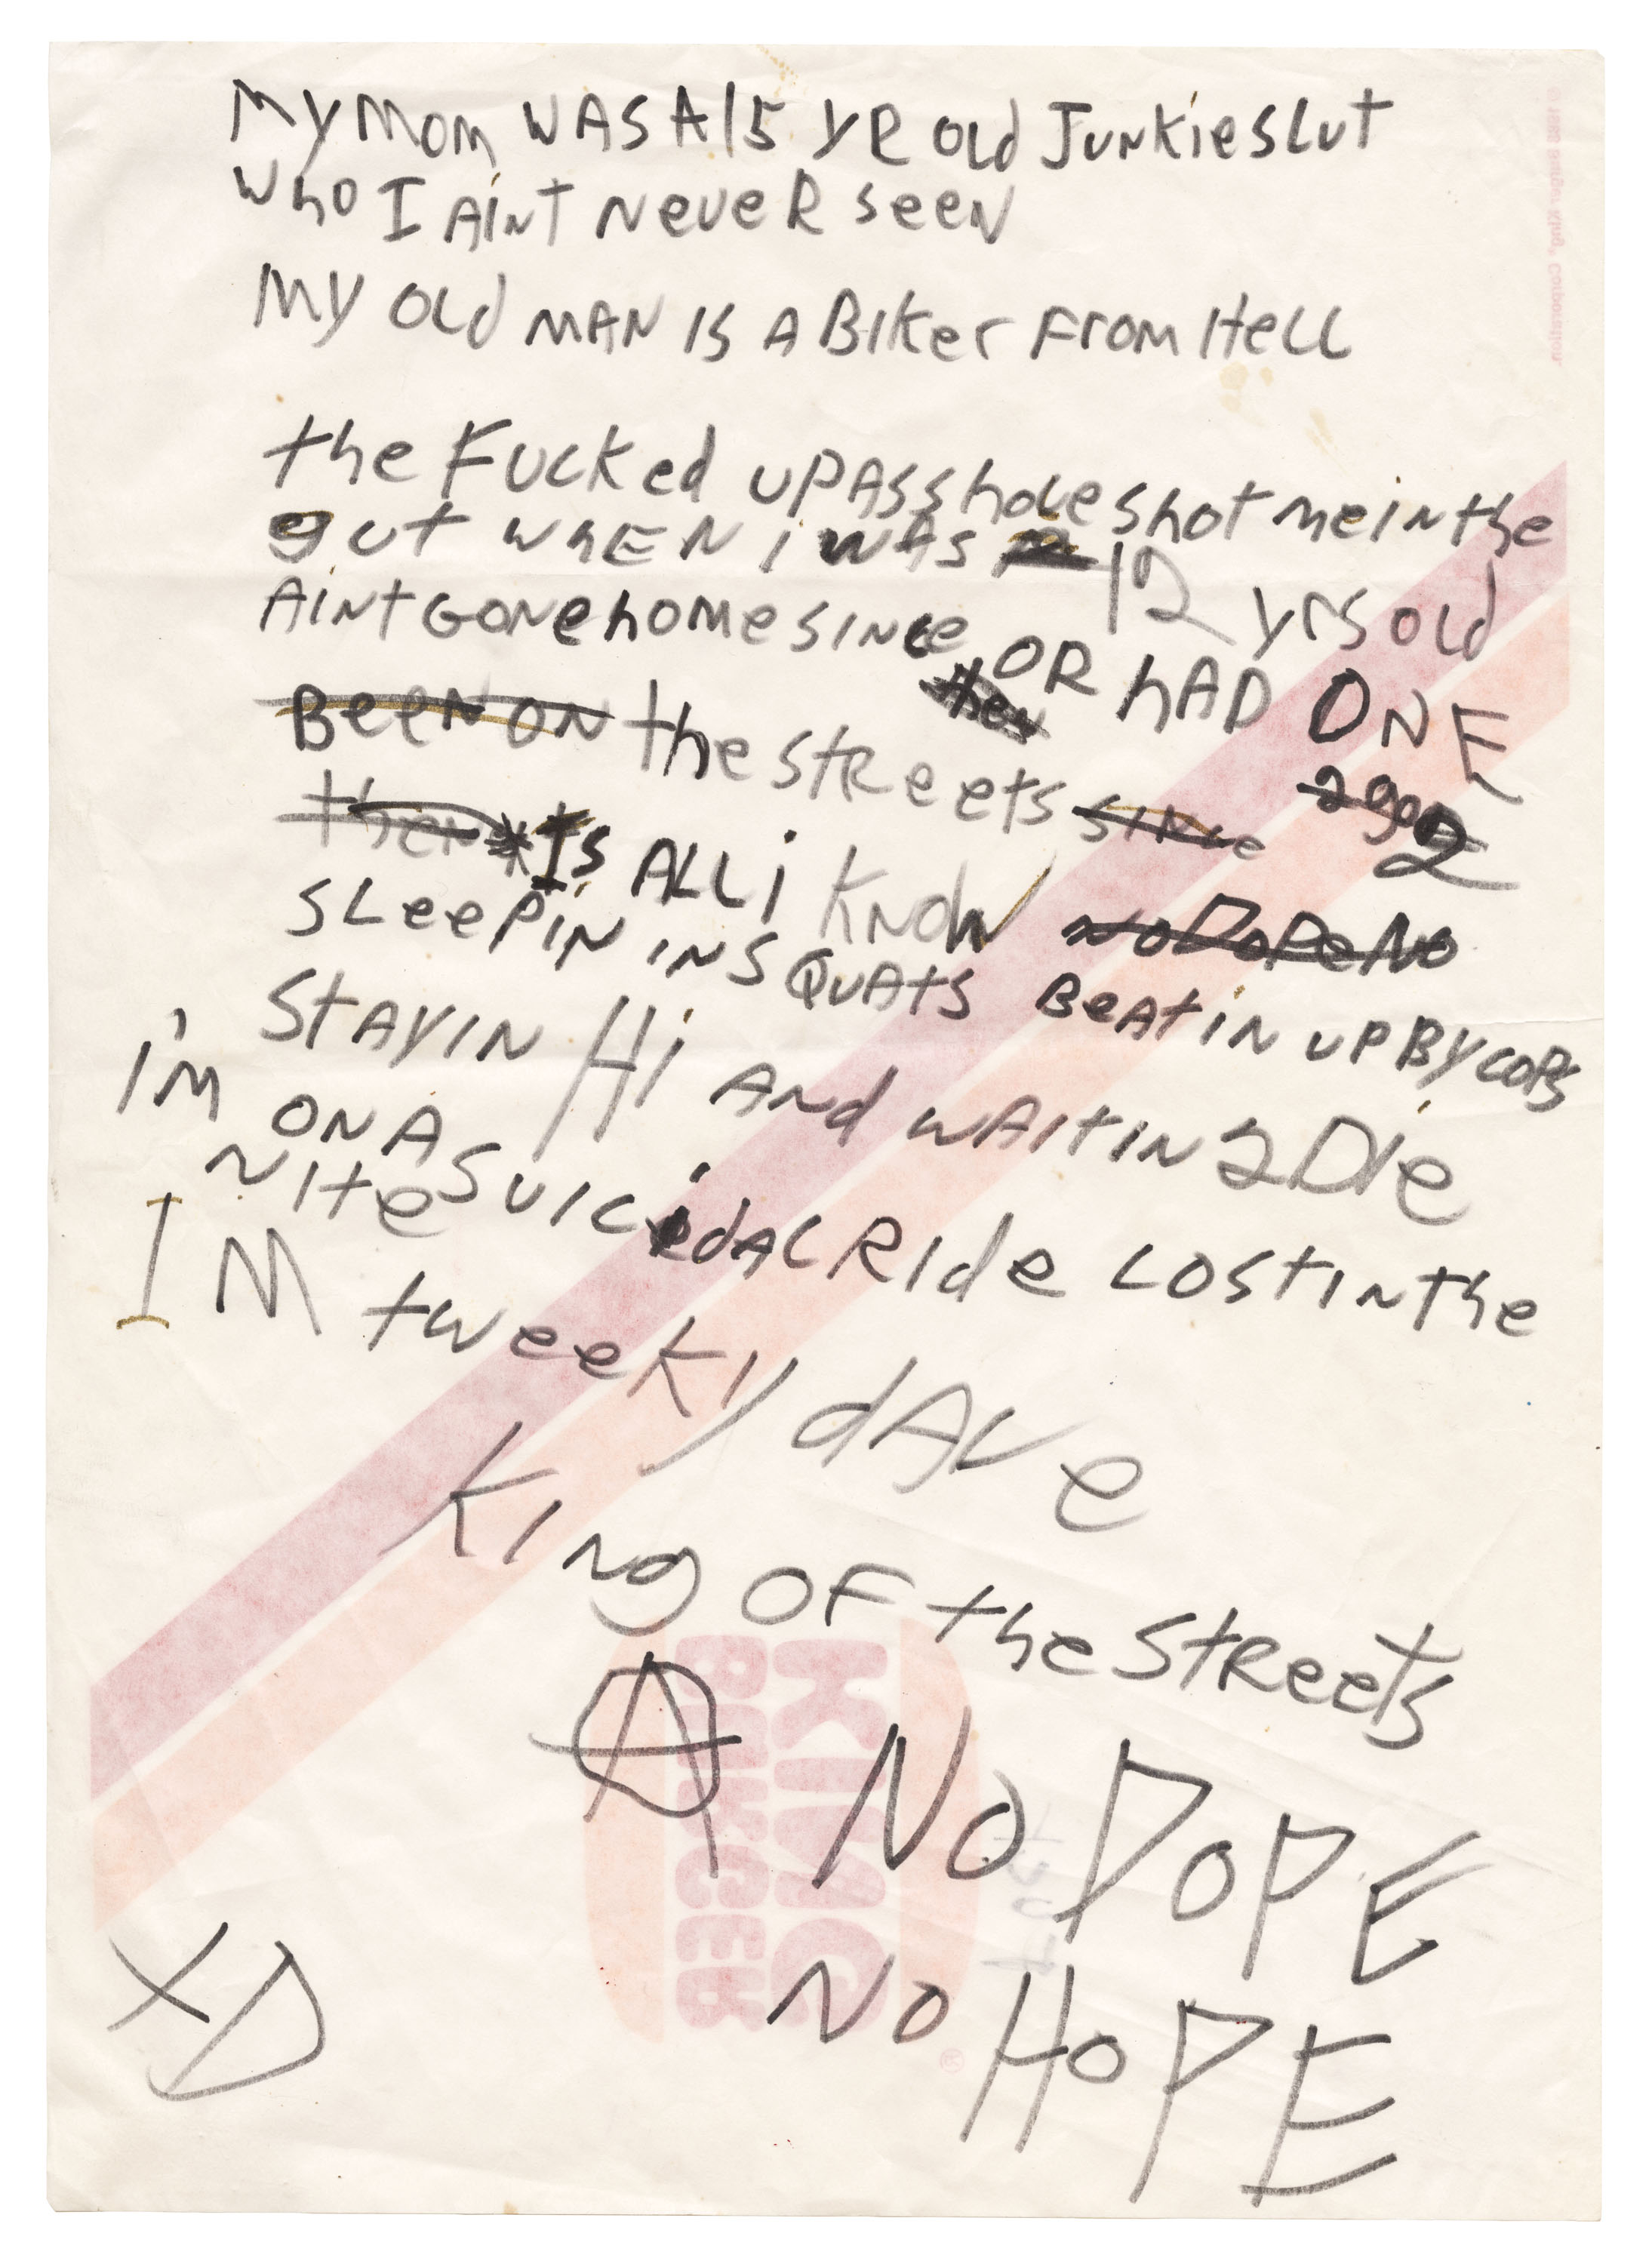 My MOM WAS A 15 YR OLD JUNKIE SLUT
WHO I AINT NEVER SEEN
MY OLD MAN IS A BIKER FROM HELL
the FUCKed UP ASShole shot me in the
gut WhEN i WAS 12 yrs old
AiNt GONe home SINce OR hAD ONE
BeeN ON the StReets SINce 2
then IS ALL i KNOW NO DOPe NO
SLeePiN iN SQUAtS BeAtiN UP BY COPS
StAYIN Hi AND WAItIN 2 Die
I'M ON A SUICidAL RIde LOSt IN the
NIte
I M tweeKy dAVe
KINg OF the StReets
A NO DOPE
NO HOPE
XD
BURGER
KING
®